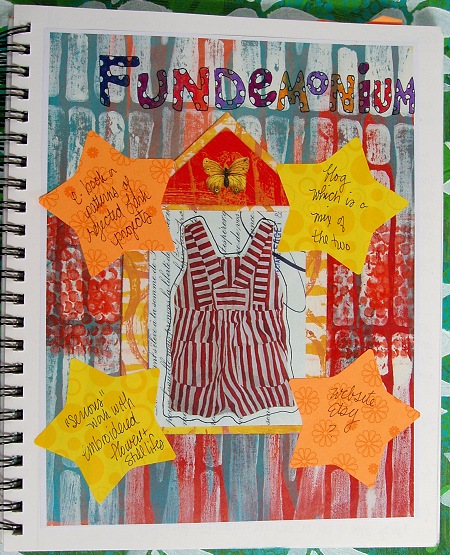 FUNDEMONIUM
patterns of
rejected fabric
projects
blog
which is a
mix of
the two
"serious"
work with
embroidered
flower
still lifes
website
etsy
?